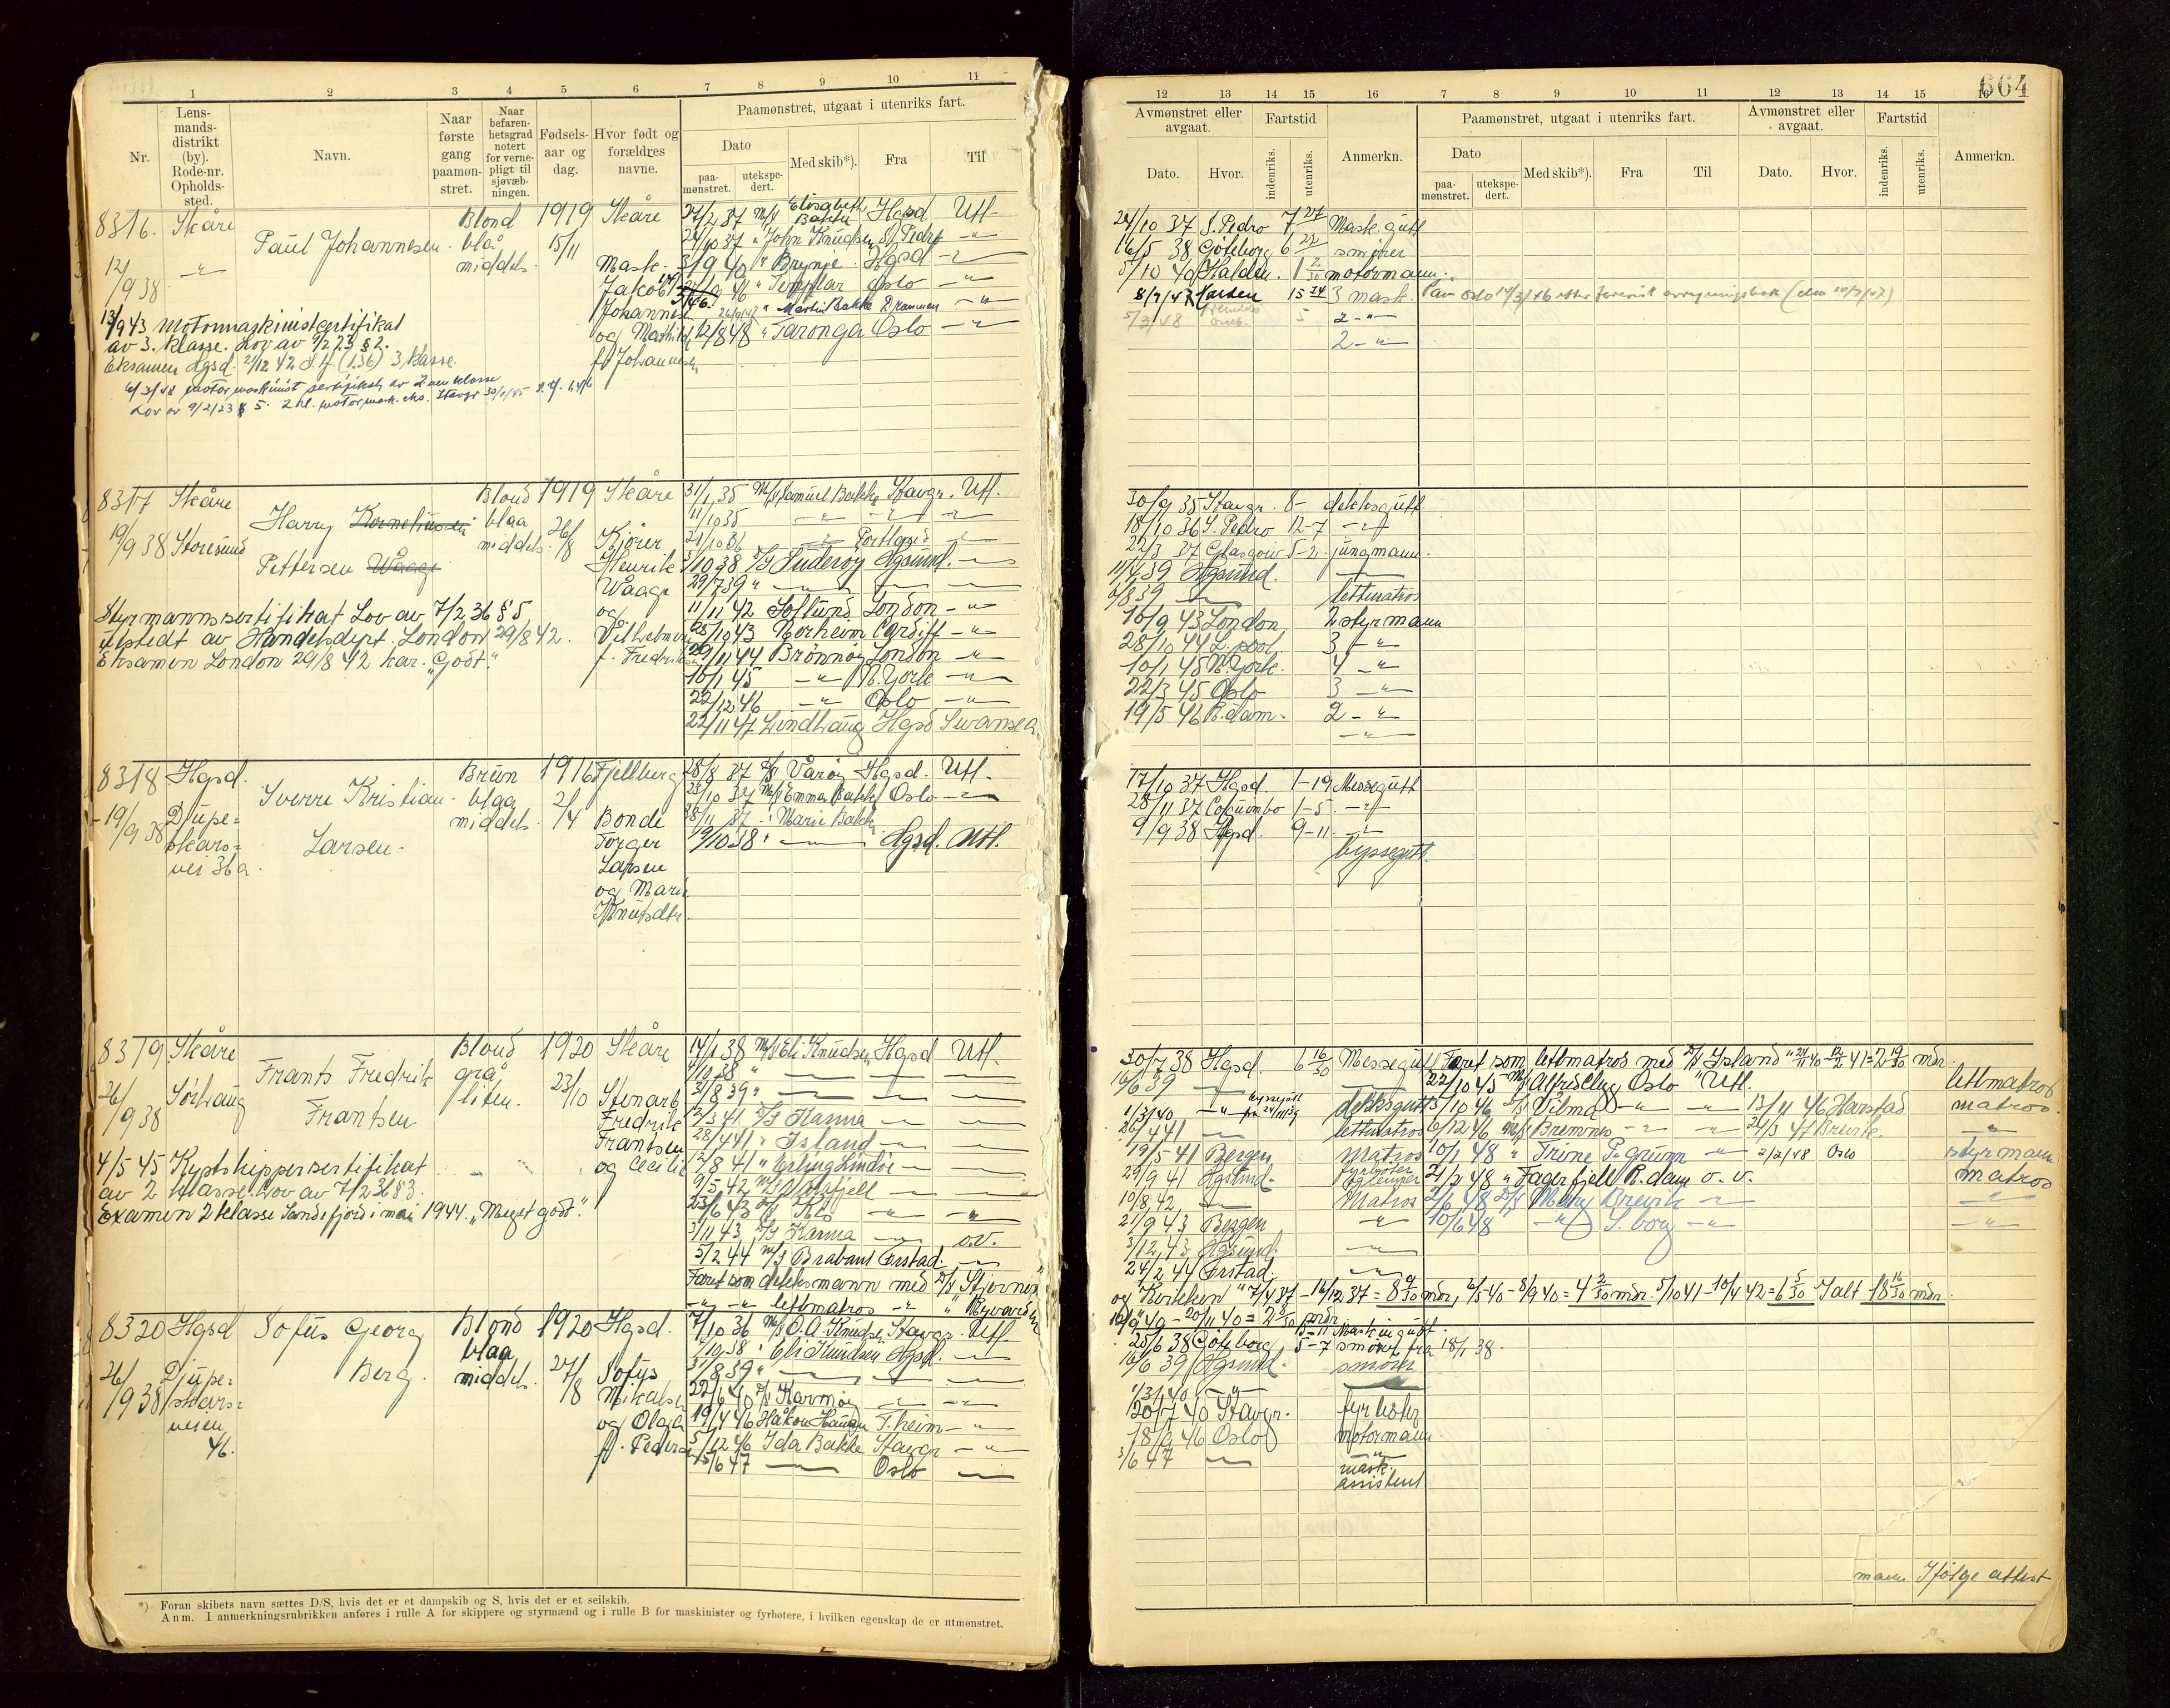 664
1 2 3 4 5 6 7 8 9 10 11
Nr.
Lens-
mands-
distrikt
(by).
Rode-nr.
Opholds-
sted.
Navn.
Naar
første
gang
paamøn-
stret.
Naar
befaren-
hetsgrad
notert
for verne-
pligt til
sjøvæb-
ningen.
Fødsels-
aar og
dag.
Hvor født og
forældres
navne.
Paamønstret, utgaat i utenriks fart.
Dato
paa-
mønstret.
utekspe-
dert.
Med skib*).
Fra
Til
8316. Skåre
12/9 38
Paul Johannesen
Blond
blå
middels
1919
15/11
Skåre
Mask.
Jacob
Johannesen
og Mathilde
f. Johannesen
27/2 37 M/S Elisabeth Bakke Hgsd Utl-
24/10 37 " John Knudsen S. Pedro -"-
3/9 40 " Brynje Hgsd -"-
Templar Oslo -"-
" Martin Bakke Drammen -"-
12/8 48 " Taronga Oslo -"-
13/9 43 Motormaskinistcertifikat
av 3. klasse. Lov av 9/2 23 § 2.
Eksamen Hgsd. 21/12 42 S.f. (1.36) 3 klasse.
6/3/48 motormaskinist sertifikat av 2nen klasse
Lov av 9/2/23 § 5. 2 kl. motormask. eks. Stavgr 30/1/45
8317 Skåre
19/9 38 Storesund
Harry Korneliussen
Pettersen Waage
Blond
blaa
middels
1919
26/8
Skåre
Kjører
Henrik
Waage
og
Vilhelmine
f. Fredriksen
31/1 35 M/S Samuel Bakke Stavgr. Utl.
11/10 35 -"- -"- -"-
21/10 36 -"- Portland -"-
3/10 38 D/S Suderøy Hgsund. -"-
29/7 39 " -"- -"- -"-
11/11 42 Soflund London -"-
28/10 43 Norheim Cardiff -"-
29/11 44 Brønnøy London -"-
10/1 45 -"- N. York -"-
22/12 46 -"- Oslo -"-
22/11 47 Lindhaug Hgsd Swansea
Styrmannssertifikat Lov av 7/2 36 § 5
utstedt av Handelsdept. London 29/8 42.
Eksamen London 29/8 42 kar. "Godt."
8318 Hgsd.
19/9 38 Djupe-
skars-
vei 36 a.
Sverre Kristian
Larsen
Brun
blaa
middels
1916
2/4
Fjellberg
Bonde
Torger
Larsen
og Marie
Knutsdtr.
28/8 37 D/S Varøy Hgsd. Utl.
23/10 37 M/S Emma Bakke Oslo -"-
28/11 37 " Marie Bakke
19/10 38 " -"- Hgsd. Utl.
8319 Skåre
26/9 38 Sørhaug
Frants Fredrik
Frantsen
Blond
grå
liten.
1920
23/10
Skåre
Stenarb
Fredrik
Frantsen
og Cecilie
14/1 38 M/S Eli Knudsen Hgsd Utl.
1/10 38 " -"- -"- -"-
31/8 39 " -"- -"- -"-
12/3 41 D/S Karma -"-
28/4 41 " Island -"-
12/8 41 " Erling Lindøe -"-
9/5 42
23/6 43
3/11 43 D/S Karma -"- o.v.
5/2 44 M/S Brabant Ørstad.
Faret som dekksmann med D/S Stjernen
-"- -"- lettmatros -"- " Myvarden
4/5 45 Kystskippersertifikat
av 2 klasse. Lov av 7/2 36 § 3.
Examen 2 klasse Sandefjord i mai 1944. "Meget godt."
8320 Hgsd
26/9 38 Djupe-
skars-
veien
46.
Sofus Georg
Berg.
Blond
blaa
middels
1920
27/8
Hgsd.
Sofus
Mikalsen
og Olga
f. Pedersen
7/10 36 M/S O. A. Knudsen Stavgr. Utl
1/10 38 " Eli Knudsen Hgsd. -"-
31/8 39 " -"- -"- -"-
22/6 40 D/S Karmøy -"- -"-
19/4 46 Håkon Haugan T.heim -"-
5/12 46 Ida Bakke Stavgr -"-
13/6 47 -"- Oslo -"-
*) Foran skibets navn sættes D/S, hvis det er et dampskib og S, hvis det er et seilskib.
Anm. I anmerkningsrubrikken anføres i rulle A for skippere og styrmænd og i rulle B for maskinister og fyrbøtere, i hvilken egenskap de er utmønstret.
12 13 14 15 16 7 8 9 10 11 12 13 14 15 16
Avmønstret eller
avgaat.
Fartstid
Dato.
Hvor.
indenriks.
utenriks.
Anmerkn.
Paamønstret, utgaat i utenriks fart.
Dato
paa-
mønstret.
utekspe-
dert.
Med skib*).
Fra
Til
Avmønstret eller
avgaat.
Fartstid
Dato.
Hvor.
indenriks.
utenriks.
Anmerkn.
24/10 37 S. Pedro 7 27 Mask. gutt
16/5 38 Göteborg 6 22 smører
5/10 40 Halden. 1 2/30 motormann.
8/7/47 15 24 3 mask.
5/3/48 2 -"-
2 -"-
30/9 35 Stavgr. 8- dekksgutt
18/10 36 S. Pedro 12-7 -"-
22/3 37 Glasgow 5-2. jungmann.
11/4 39 Hgsund. -"-
2/8 39 -"- lettmatros
16/9 43 London. 2 styrmann
28/10 44 L. pool. 3 -"-
10/1 45 N. York. 4 -"-
22/3 45 Oslo 3 -"-
19/5 46 R. dam. 2 -"-
-"-
17/10 37 Hgsd. 1-19 Messegutt
28/11 37 Columbo 1-5. -"-
9/9 38 Hgsd. 9-11. -"-
byssegutt.
30/7 38 Hgsd. 6 16/30 Messegutt Faret som lettmatros med D/S Island
16/6 39 -"- 22/10 45 M/S Alfrid Clug Oslo Utl. lettmatros
1/3/40 -"- byssegutt fra 24/11/39 dekksgutt 3/10 46 D/S Vilma -"- -"- 13/11 46 Harstad matros.
26/4 41 -"- lettmatros 6/12 46 M/S Bremnes -"- -"- 24/3 47 Brevik. -"-
19/5 41 Bergen Matros 10/1 48 " Trine P. grunn -"- 2/2/48 Oslo styrmann
29/9 41 Hgsund. fyrbøter lemper 21/2 48 " Fagerfjell R. dam o. v. matros
10/8 42 -"- Matros 2/6 48 D/S Mary Brevik -"- -"-
21/9 43 Bergen -"- 10/6 48 -"- S. borg -"- -"-
3/12 43 Hgsund. -"-
24/2 44 Ørstad. -"-
25/6 38 Göteborg 5-7 smører fra 18/1 38.
16/6 39 Hgsund. smører
1/3/40 -"- -"-
20/7 40 Stavgr. fyrbøter
18/9 46 Oslo motormann
3/6 47 -"- -"-
mask.
assistent
mann. Ifølge attest